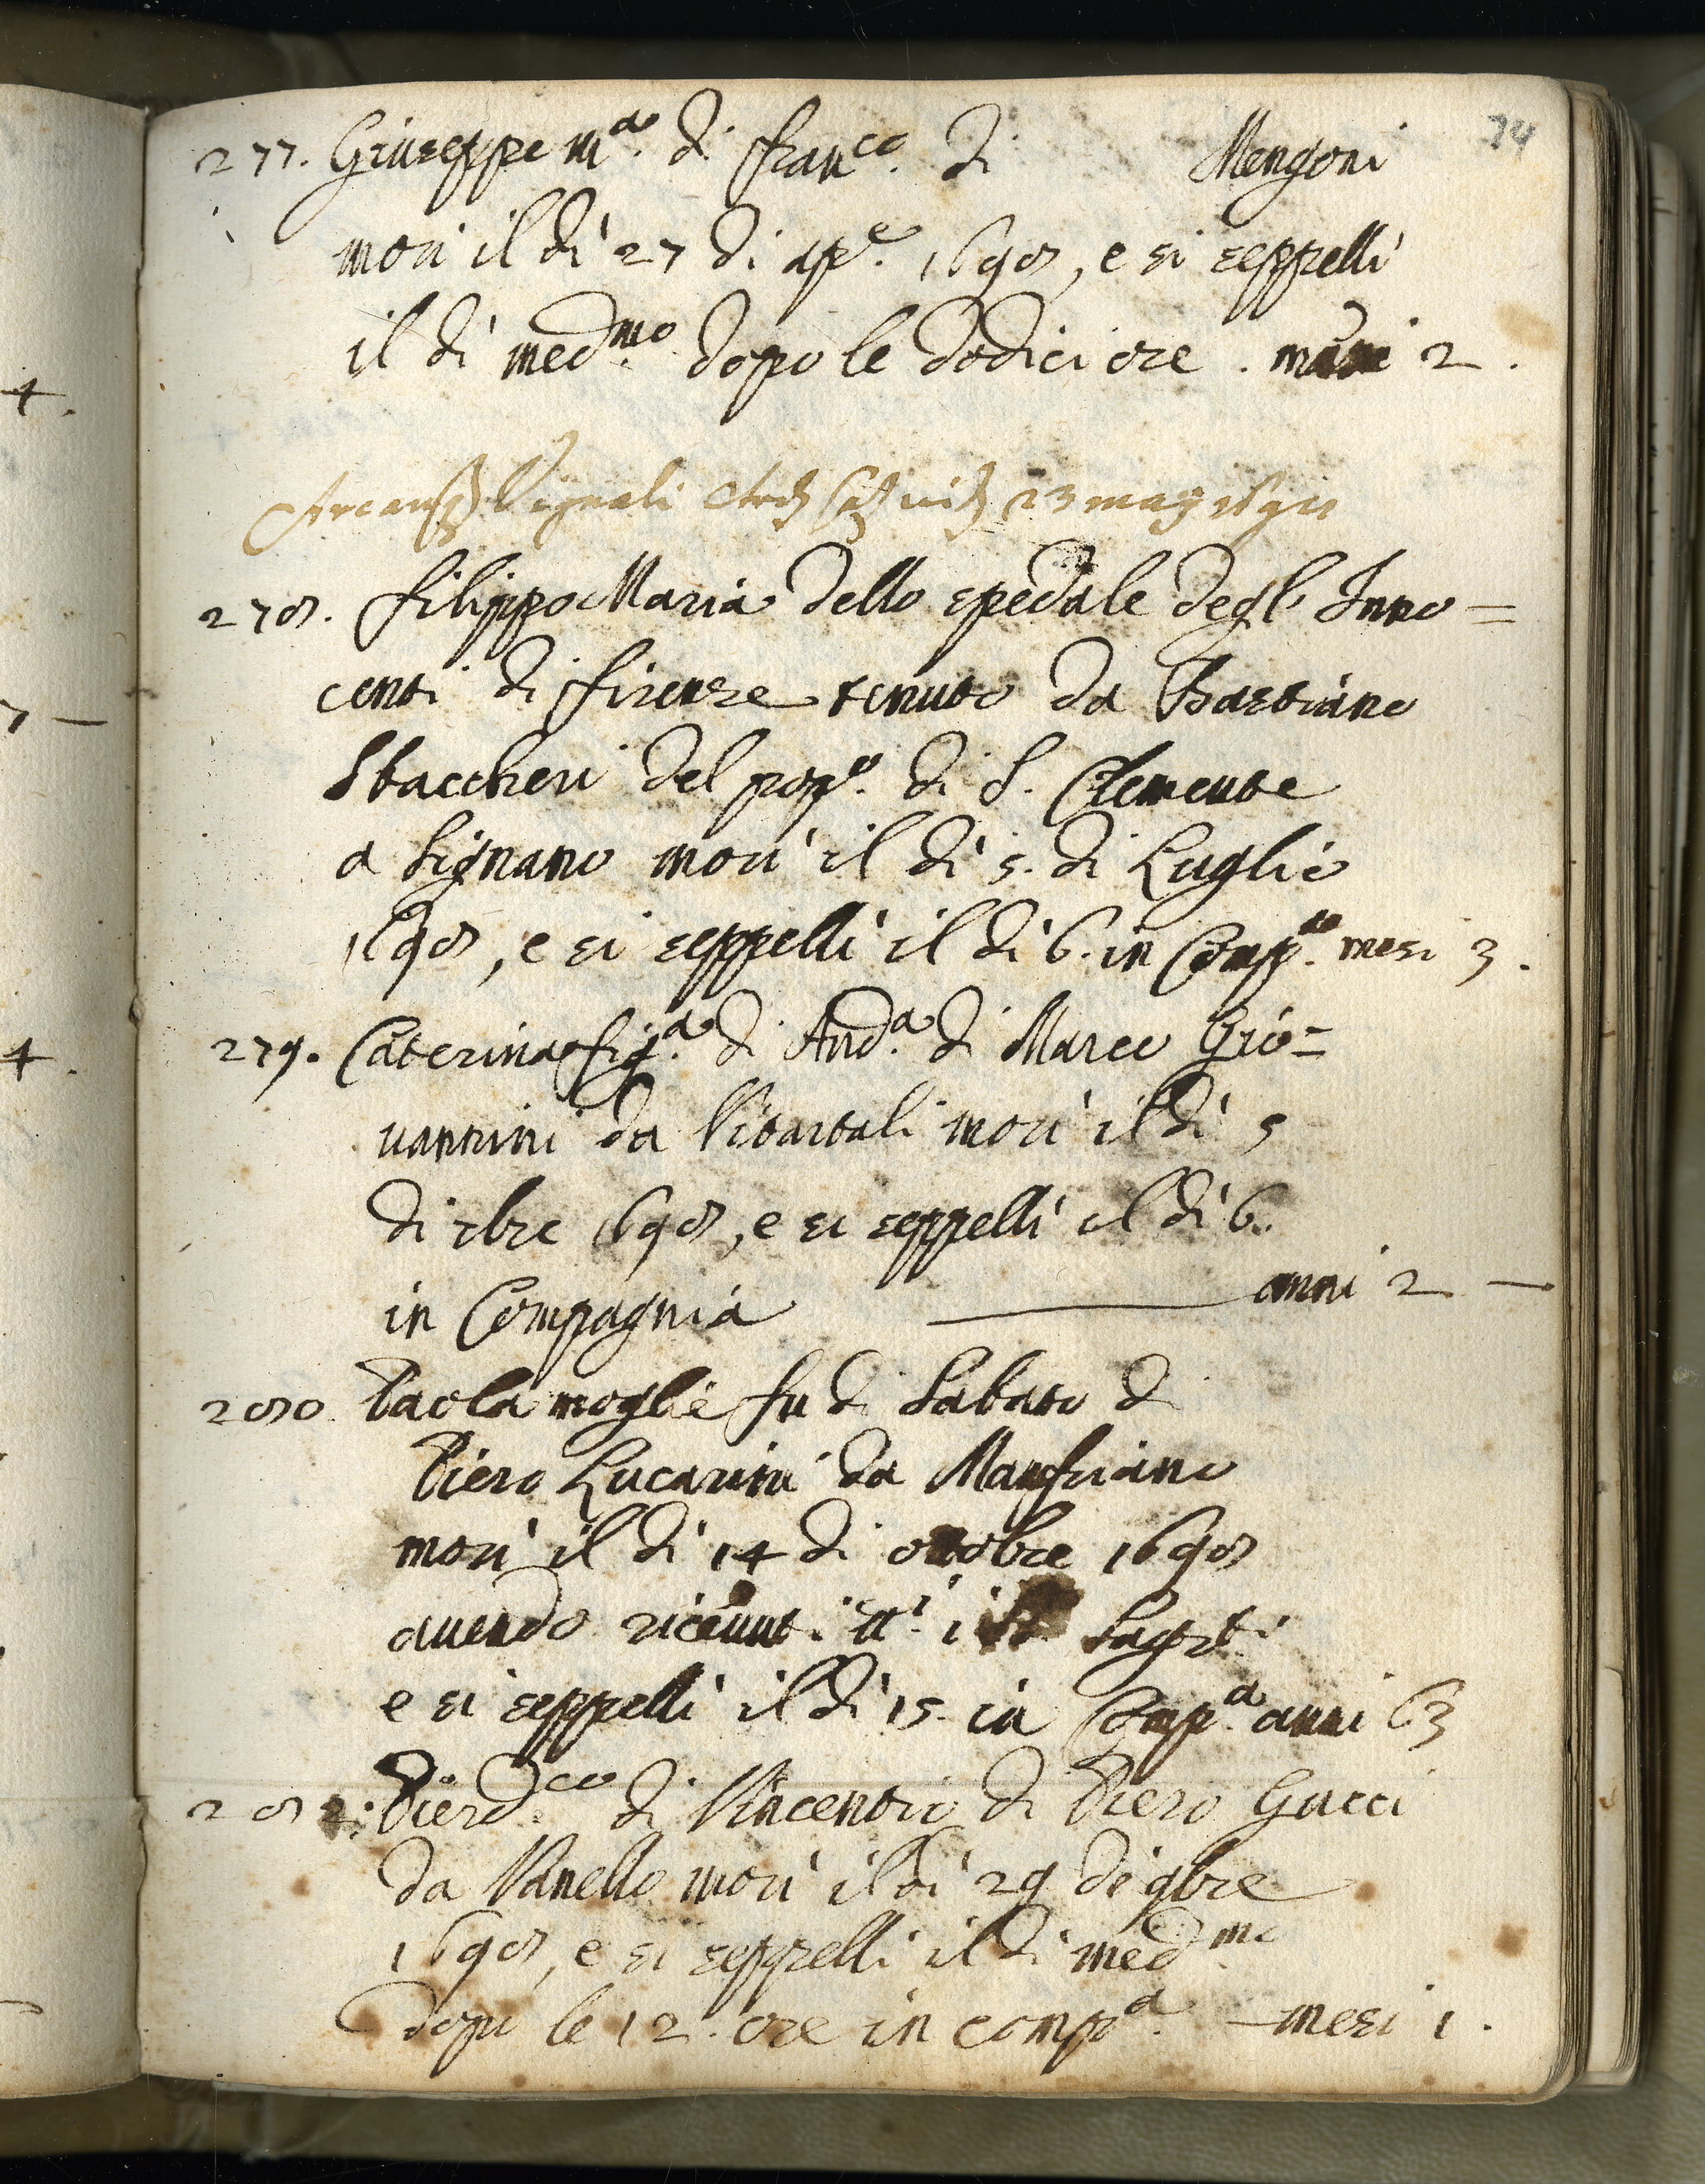 74
277. Giuseppe Mª. di Franco. di Mengoni
morì il dì 27 di Apᵉ. 1698, e si seppellì
il dì medmo. dopo le dodici ore. 2.
Vignali 23 mag
278. Filippo Maria dello spedale degl' Inno=
centi di Firenze tenuto da Bastiano
Sbaccheri del popº. di S. Clemente
a Signano morì il dì 5. di Luglio
1698, e si seppellì il dì 6. in Compª. mesi 3.
279. Caterina figª. di Andª. di Marco Gio=
vannini da Pitartali morì il dì 5
di 7bre 1698, e si seppellì il dì 6.
in Compagnia anni 2
280. Paola moglie fu di Sabato di
Piero Lucarini da Manfriano
morì il dì 14 di ottobre 1698
avendo ricevuti tti. i Sagrti.
e si seppellì il dì 15. in Compª. anni 63
28 Pierdco. di Vincentio di Piero Gucci
da Vanello morì il dì 29 di 9bre
1698, e si seppellì il dì medmo.
dopo le 12. ore in compª. mesi 1.